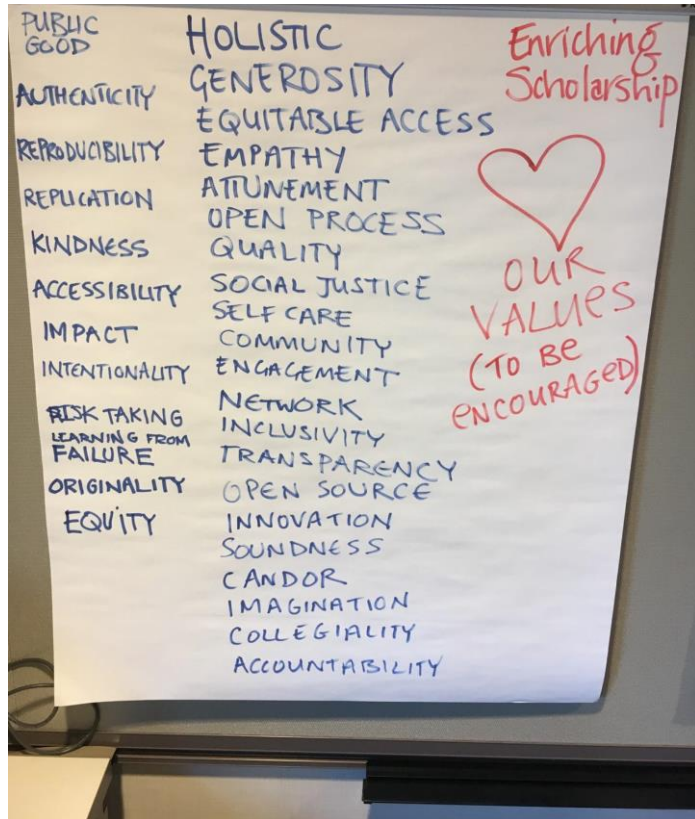 PUBLIC
GOOD
AUTHENTICITY
REPRODUCIBILITY
REPLICATION
KINDNESS
ACCESSIBILITY
IMPACT
INTENTIONALITY
RISK TAKING
LEARNING FROM
FAILURE
ORIGINALITY
EQUITY
HOLISTIC
GENEROSITY
EQUITABLE ACCESS
EMPATHY
ATTUNEMENT
OPEN PROCESS
QUALITY
SOCIAL JUSTICE
SELF CARE
COMMUNITY
ENGAGEMENT
NETWORK
INCLUSIVITY
TRANSPARENCY
OPEN SOURCE
INNOVATION
SOUNDNESS
CANDOR
IMAGINATION
COLLEGIALITY
ACCOUNTABILITY
Enriching
Scholarship
OUR
VALUES
(TO BE
ENCOURAGED)